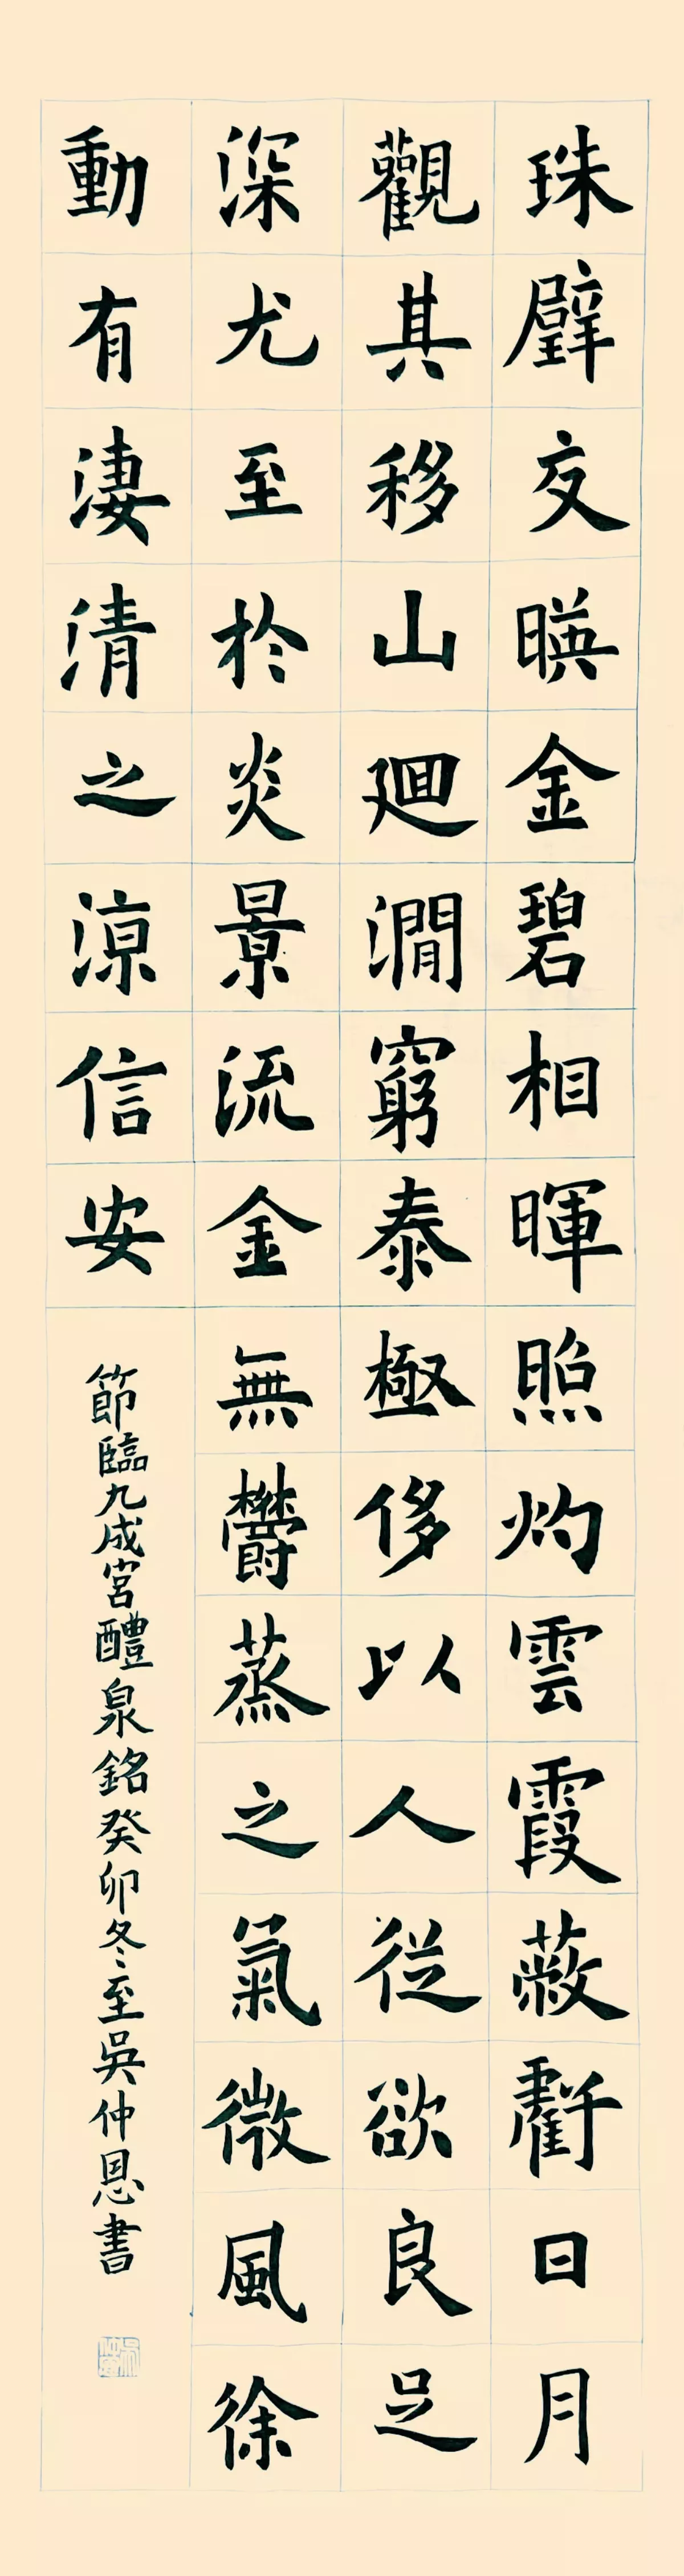 珠壁交暎金碧相暉照灼雲霞蔽虧日月
觀其移山廻澗窮泰極侈以人從欲良足
深尤至於炎景流金無鬱蒸之氣微風徐
動有淒清之涼信安
節臨九成宮醴泉銘癸卯冬至吳仲恩書